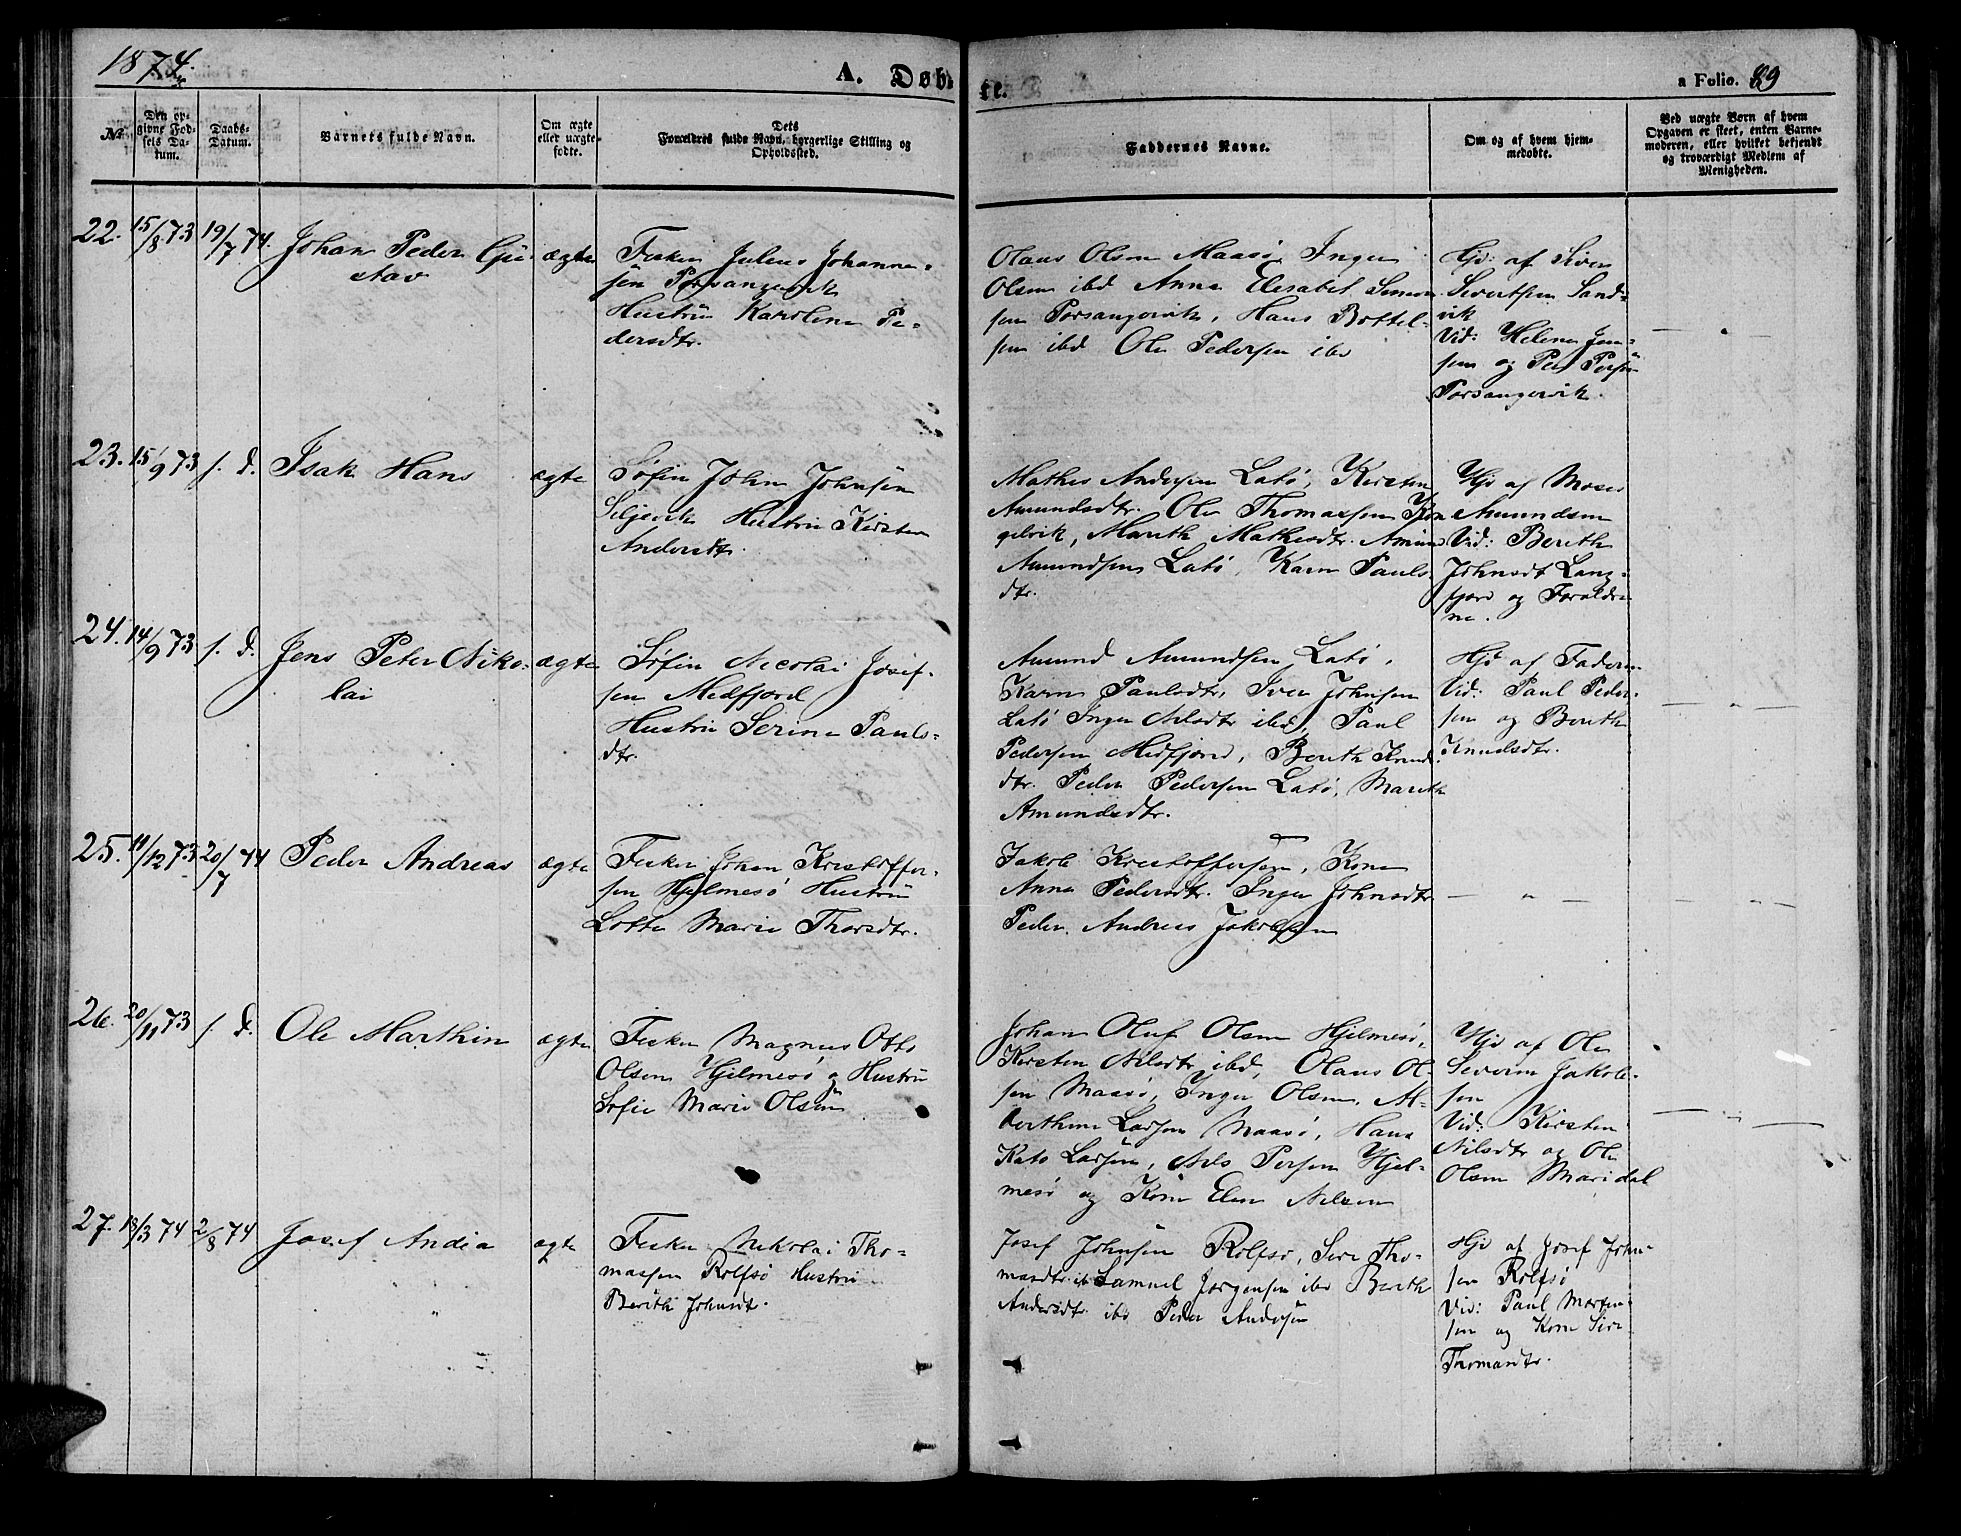 1874.
A. Døb-
te.
a Folio. 89
No
Den op-
givne Fød-
sels Da-
tum.
Daabs-
Datum.
Barnets fulde Navn.
Om ægte
eller uægte-
fødte.
Dets
Forældres fulde Navn, borgerlige Stilling og
Opholdssted.
Faddernes Navne.
Om og af hvem hjem-
medøbte.
Ved uægte Børn af hvem
Opgaven er skeet, enten Barne-
moderen, eller hvilket bekjendt
og troværdigt Medlem af
Menigheden.
22. 15/8 73 19/7 74. Johan Peder Gu-
stav
ægte
Fisker Julius Johanne-
sen Porsangervik
Hustru Karoline Pe-
dersdtr.
Olaus Olsen Maasø, Inger
Olsen ibd Anna Elisabet Simon-
sen Porsangervik, Hans Bottel-
sen ibd Ole Pedersen ibd
Hjd: af Siver
Sivertsen Sand-
vik
Vid: Helene Jen-
sen og Per Persen
Porsangervik.
23. 15/9 73 s. D. Isak Hans
ægte
Søfin John Johnsen
Seljevik Hustru Kirsten
Andersdtr.
Mathis Andersen Latø, Kirsten
Amundsdtr. Ole Thomassen Kon
gelvik, Marith Mathisdtr. Amund
Amundsen Latø, Karn Pauls-
dtr.
Hjd af Moses
Amundsen
Vid: Berith
Johnsdt Lang-
fjord og Forældre-
ne.
24. 14/9 73 s. D. Jens Peter Niko-
lai
ægte
Søfin Nicolai Josef-
sen Medfjord
Hustru Serine Pauls-
dtr.
Amund Amundsen Latø,
Karn Paulsdtr, Iver Johnsen
Latø Inger Nilsdtr ibd, Paul
Pedersen Medfjord, Berith Knuds
dtr. Peder Pedersen Latø, Marith
Amundsdtr.
Hjd af Faderen
Vid: Paul Peder-
sen og Berith
Knudsdtr.
25. 11/12 73 20/7 74 Peder Andreas
ægte
Fisker Johan Kristoffer-
sen Hjelmesø Hustru
Lotte Marie Thorsdtr.
Jakob Kristoffersen, Kone
Anne Pedersdtr. Inger Johnsdtr
Peder Andreas Jakobsen
26. 20/11 73 s. D. Ole Marthin
ægte
Fisker Magnus Otto
Olsen Hjelmesø og Hustru
Sofie Marie Olsen
Johan Oluf Olsen Hjelmesø,
Kirsten Nilsdtr ibd, Olaus Ol-
sen Maasø, Inger Olsen, Al-
berthine Larsen Maasø, Hans
Kato Larsen, Nils Persen Hjel-
mesø og Kone Elen Nilsen
Hjd af Ole
Severin Jakob-
sen
Vid: Kirsten
Nilsdtr og Ole
Olsen Maridal
27. 13/3 74 2/8 74 Josef Andia
ægte
Fisker Nikolai Tho-
massen Rolfsø Hustru
Berith Johnsdt.
Josef Johnsen Rolfsø, Sire Tho-
masdtr. ib Samuel Jørgensen ibd Berith
Andersdtr. ibd Peder Andersen
Hjd af Josef John-
sen Rolfsø
Vid: Paul Morten-
sen og Kone Sire
Thomasdtr.